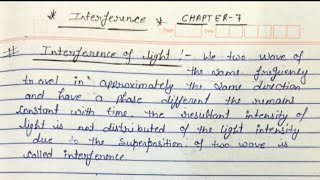 * Interference * CHAPTER-7
# Interference of light :- We two wave of
the same frequency
travel in approximately the same direction
and have a phase different the remains
constant with time, the resultant intensity of
light is not distributed of the light intensity
due to the superposition of two wave is
called interference.